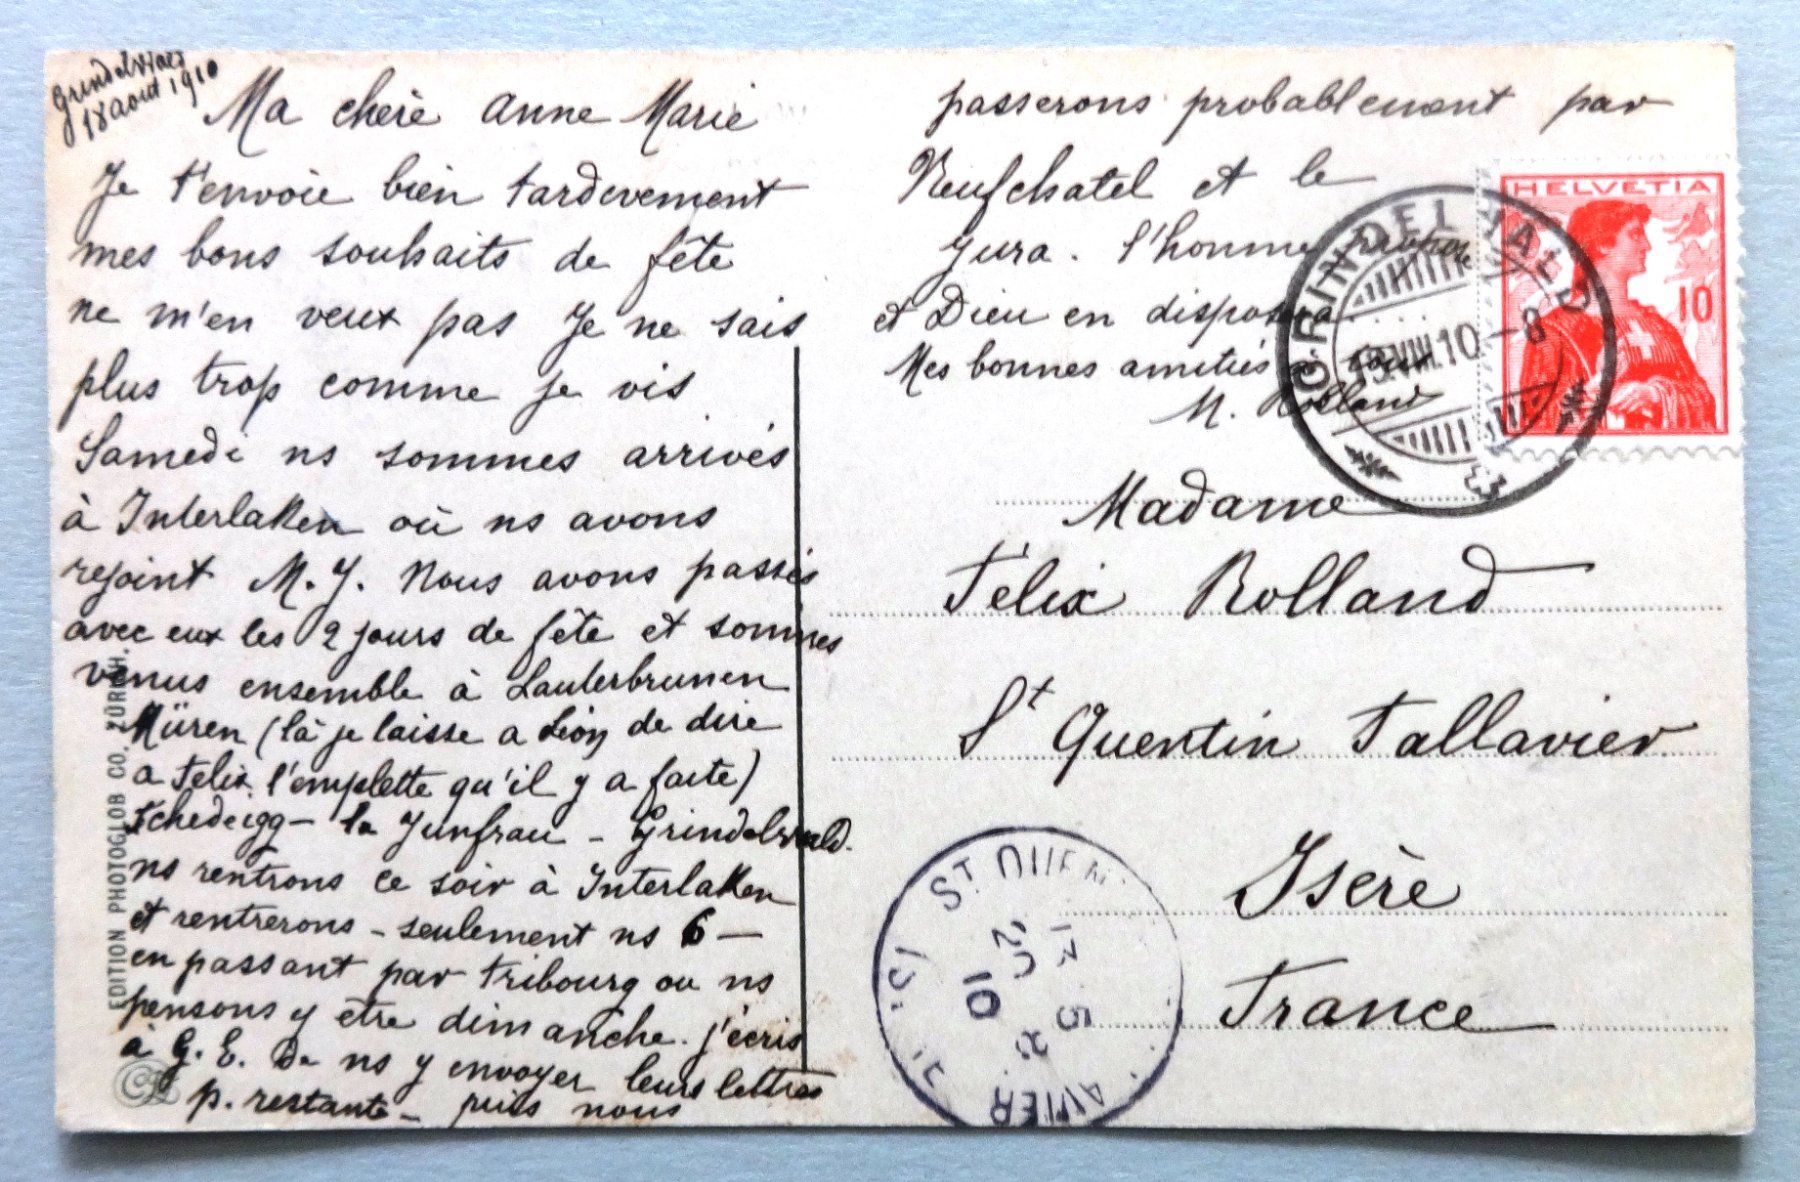 Grindelwald
18 aout 1910
Ma chère Anne Marie
Je t'envoie bien tardivement
mes bons souhaits de fête
ne m'en veux pas je ne sais
plus trop comme je vis
Samedi ns sommes arrivés
à Interlaken où ns avons
rejoint M. J. Nous avons passés
avec eux les 2 jours de fête et sommes
venus ensemble à Lauterbrunen
Müren (là je laisse a Léon de dire
a Felix l'emplette qu'il y a faite)
Schedeigg - la Junfrau - Grindelwald.
ns rentrons ce soir à Interlaken
et rentrerons - seulement ns 6 -
en passant par Fribourg ou ns
pensons y être dimanche. j'écris
à G. E. de ns y envoyer leurs lettres
p. restante - puis nous
passerons probablement par
Neufchatel et le
Jura. l'homme propose
et Dieu en disposera
Mes bonnes amitiés à tous
M. Rolland
HELVETIA
10
GRINDELWALD
19.VIII.10 - 8
Madame
Félix Rolland
St Quentin Fallavier
Isère
France
ST. QUEN
AVIER
13 5
20 8
10
EDITION PHOTOGLOB CO. ZÜRICH.